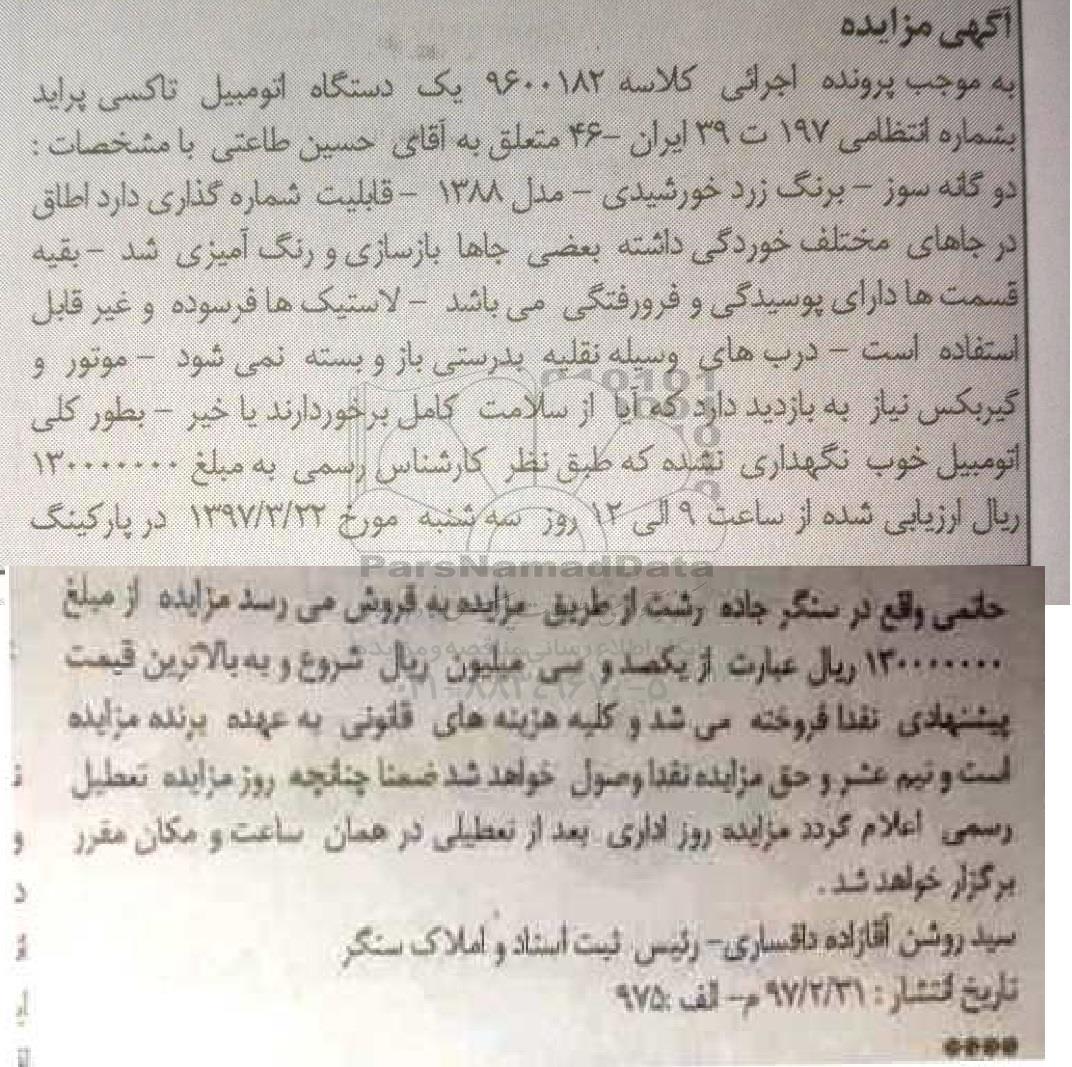 آگهی مزایده
به موجب پرونده اجرائی کلاسه ۹۶۰۰۱۸۲ یک دستگاه اتومبیل تاکسی پراید
بشماره انتظامی ۱۹۷ ت ۳۹ ایران –۴۶ متعلق به آقای حسین طاعتی با مشخصات :
دو گانه سوز – برنگ زرد خورشیدی – مدل ۱۳۸۸ – قابلیت شماره گذاری دارد اطاق
در جاهای مختلف خوردگی داشته بعضی جاها بازسازی و رنگ آمیزی شد – بقیه
قسمت ها دارای پوسیدگی و فرورفتگی می باشد – لاستیک ها فرسوده و غیر قابل
استفاده است – درب های وسیله نقلیه بدرستی باز و بسته نمی شود – موتور و
گیربکس نیاز به بازدید دارد که آیا از سلامت کامل برخوردارند یا خیر – بطور کلی
اتومبیل خوب نگهداری نشده که طبق نظر کارشناس رسمی به مبلغ ۱۳۰۰۰۰۰۰۰
ریال ارزیابی شده از ساعت ۹ الی ۱۲ روز سه شنبه مورخ ۱۳۹۷/۳/۲۲ در پارکینگ
ParsNamadData
حاتمی واقع در سنگر جاده رشت از طریق مزایده به فروش می رسد مزایده از مبلغ
پایگاه اطلاع رسانی مناقصه و مزایده
۱۳۰۰۰۰۰۰۰ ریال عبارت از یکصد و سی میلیون ریال شروع و به بالاترین قیمت
۰۲۱-۸۸۳۴۹۶۷۰-۵
پیشنهادی نقدا فروخته می شد و کلیه هزینه های قانونی به عهده برنده مزایده
است و نیم عشر و حق مزایده نقدا وصول خواهد شد ضمنا چنانچه روز مزایده تعطیل
رسمی اعلام گردد مزایده روز اداری بعد از تعطیلی در همان ساعت و مکان مقرر
برگزار خواهد شد .
سید روشن آقازاده دافساری– رئیس ثبت اسناد و املاک سنگر
تاریخ انتشار : ۹۷/۲/۳۱ م– الف :۹۷۵
****